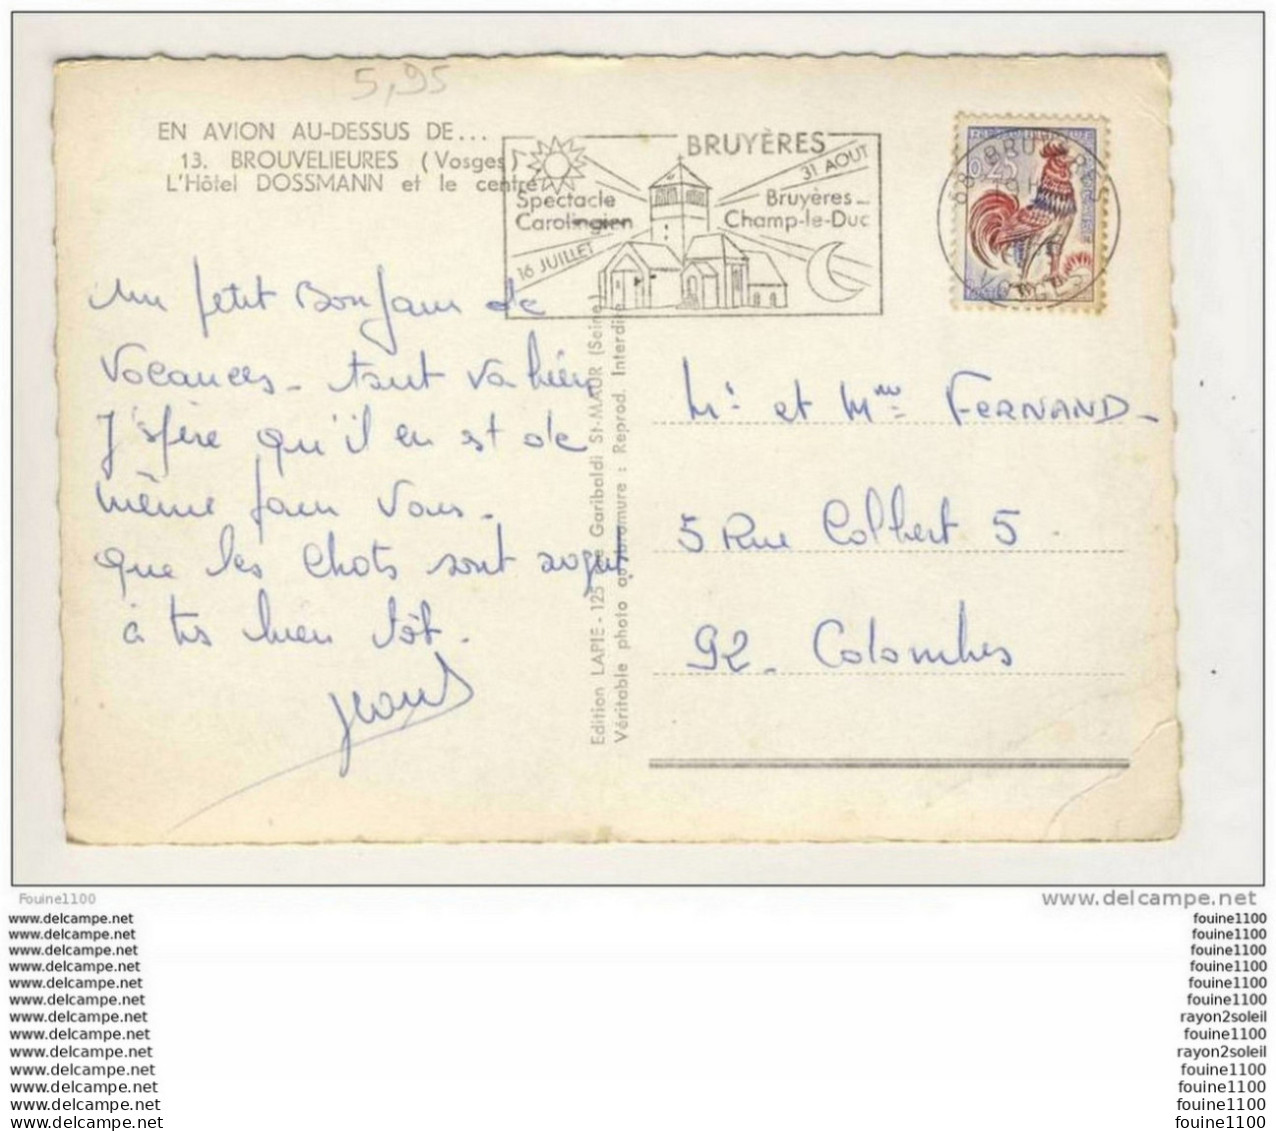 5,95
EN AVION AU-DESSUS DE...
13. BROUVELIEURES (Vosges)
L'Hôtel DOSSMANN et le centre
BRUYÈRES
31 AOUT
Spectacle
Carolingien
Bruyères_
Champ-le-Duc
16 JUILLET
88 BRUYERES
VOSGES
0,25
un petit Bonjour de
Vacances - tout va bien
J'spère qu'il en est de
même pour vous.
que les Chats sont
à très bien tôt.
Mr et Mme FERNAND_
5 Rue Colbert 5
92_ Colombes
Edition LAPIE - 125 Garibaldi St-MAUR (Seine)
Véritable photo au bromure : Reprod. Interdite
Fouine1100
www.delcampe.net
www.delcampe.net
fouine1100
www.delcampe.net
fouine1100
www.delcampe.net
fouine1100
www.delcampe.net
fouine1100
www.delcampe.net
fouine1100
www.delcampe.net
fouine1100
www.delcampe.net
rayon2soleil
www.delcampe.net
fouine1100
www.delcampe.net
rayon2soleil
www.delcampe.net
fouine1100
www.delcampe.net
fouine1100
www.delcampe.net
fouine1100
www.delcampe.net
fouine1100